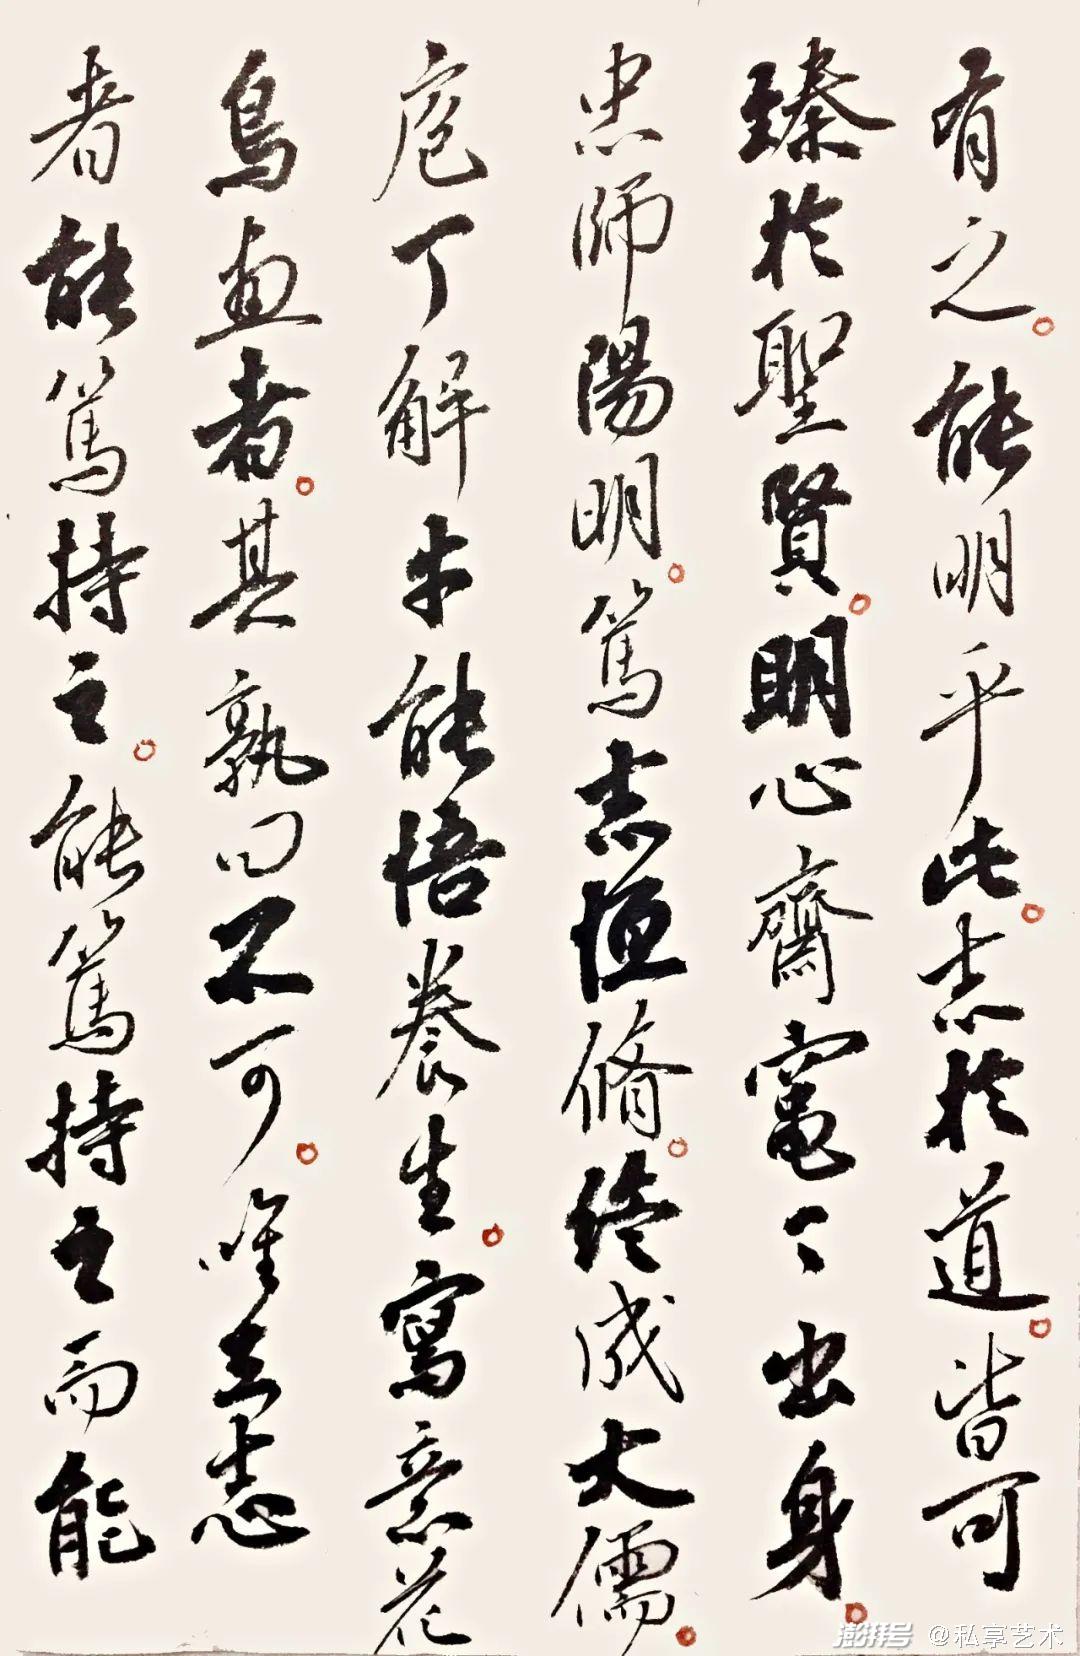 有之。能明乎此。志於道。皆可
臻於聖賢。明心齋竈丁出身。
忠師陽明。篤志恆脩。終成大儒。
庖丁解牛能悟養生。寫意花
鳥畫者。其孰曰不可。唯立志
者能篤持之。能篤持之而能
澎湃号 @私享艺术